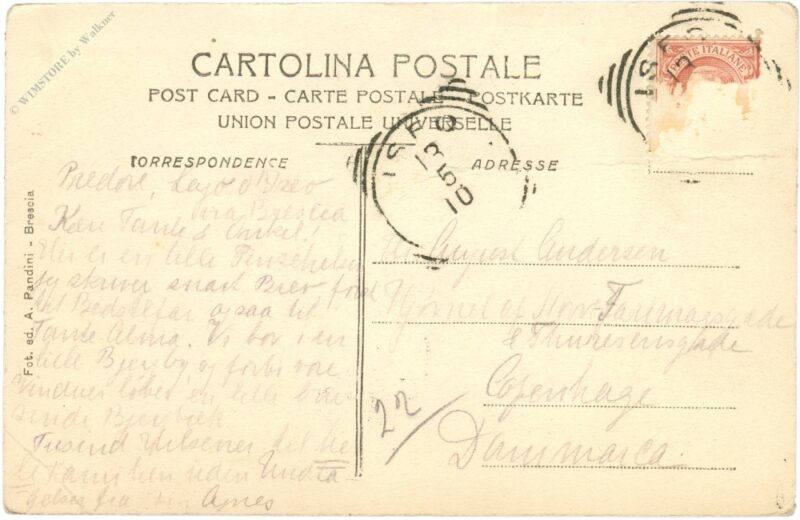 © WIMSTORE by Walkner
CARTOLINA POSTALE
POST CARD - CARTE POSTALE - POSTKARTE
UNION POSTALE UNIVERSELLE
CORRESPONDENCE
ADRESSE
POSTE ITALIANE
ISEO
13 5 10
ISEO
13
Fot. ed. A. Pandini - Brescia
Predore, Lago d'Iseo
via Brescia
Kære Tante & Onkel!
Her er en lille
jeg skriver snart Brev først
til Bedstefar ogsaa til
Tante Alma. Vi bor i en
lille Bjergby og forbi vore
Vinduer løber en lille
Bjergbæk
Tusind Hilsener til he-
le Familien uden Undta-
gelse fra Agnes
Hr. August Andersen
Hjørnet af Nørre Farimagsgade
& Thuresensgade
Copenhage
Danimarca.
22/